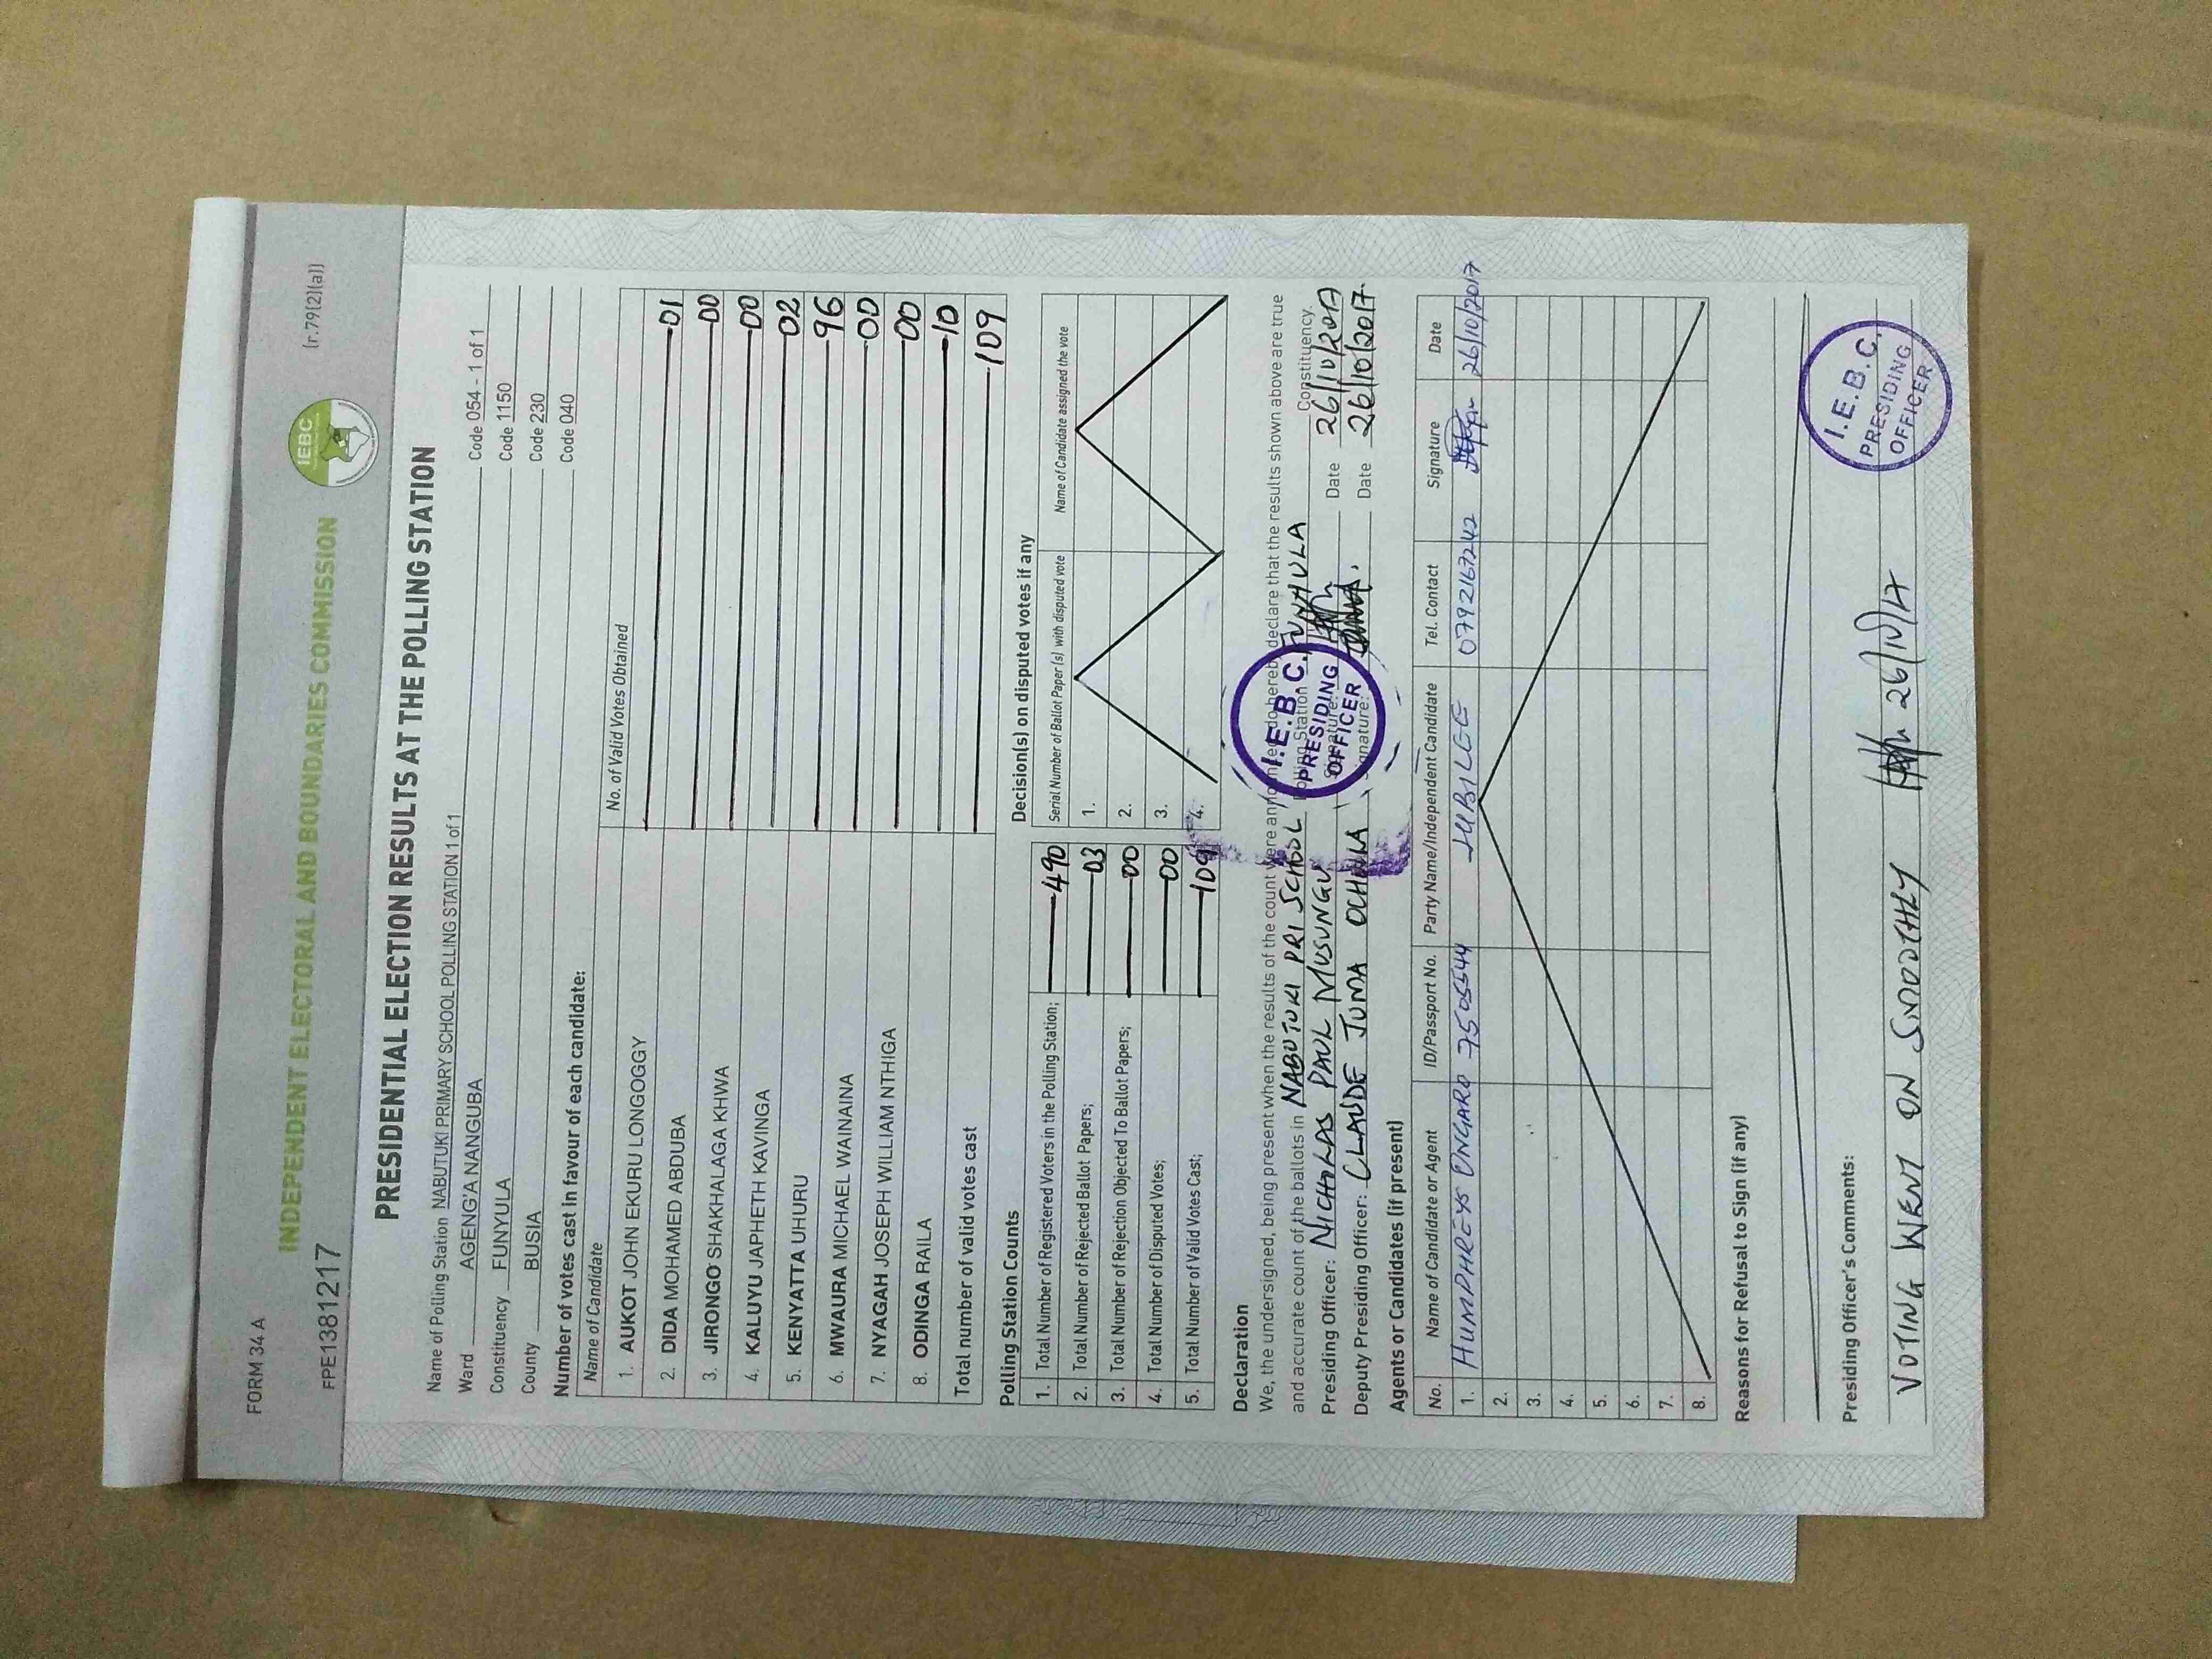 FORM 34 A
(r.79(2)(a))
INDEPENDENT ELECTORAL AND BOUNDARIES COMMISSION
IEBC
FPE1381217
PRESIDENTIAL ELECTION RESULTS AT THE POLLING STATION
Name of Polling Station NABUTUKI PRIMARY SCHOOL POLLING STATION 1 of 1 Code 054 - 1 of 1
Ward AGENG'A NANGUBA Code 1150
Constituency FUNYULA Code 230
County BUSIA Code 040
Number of votes cast in favour of each candidate:
Name of Candidate No. of Valid Votes Obtained
1. AUKOT JOHN EKURU LONGOGGY 01
2. DIDA MOHAMED ABDUBA 00
3. JIRONGO SHAKHALAGA KHWA 00
4. KALUYU JAPHETH KAVINGA 02
5. KENYATTA UHURU 96
6. MWAURA MICHAEL WAINAINA 00
7. NYAGAH JOSEPH WILLIAM NTHIGA 00
8. ODINGA RAILA 10
Total number of valid votes cast 109
Polling Station Counts
1. Total Number of Registered Voters in the Polling Station; 490
2. Total Number of Rejected Ballot Papers; 03
3. Total Number of Rejection Objected To Ballot Papers; 00
4. Total Number of Disputed Votes; 00
5. Total Number of Valid Votes Cast; 109
Decision(s) on disputed votes if any
Serial Number of Ballot Paper(s) with disputed vote Name of Candidate assigned the vote
1.
2.
3.
4.
Declaration
We, the undersigned, being present when the results of the count were announced do hereby declare that the results shown above are true
and accurate count of the ballots in NABUTUKI PRI SCHOOL Polling Station FUNYULA Constituency.
Presiding Officer: NICHOLAS PAUL MUSUNGU Signature: Date 26/10/2017
Deputy Presiding Officer: CLAUDE JUMA OCHOLA Signature: Date 26/10/2017
I.E.B.C.
PRESIDING
OFFICER
Agents or Candidates (if present)
No. Name of Candidate or Agent ID/Passport No. Party Name/Independent Candidate Tel. Contact Signature Date
1. HUMPHREYS ONGARO 7505544 JUBILEE 0792167242 26/10/2017
2.
3.
4.
5.
6.
7.
8.
Reasons for Refusal to Sign (if any)
Presiding Officer's Comments:
VOTING WENT ON SMOOTHLY 26/10/17
I.E.B.C.
PRESIDING
OFFICER